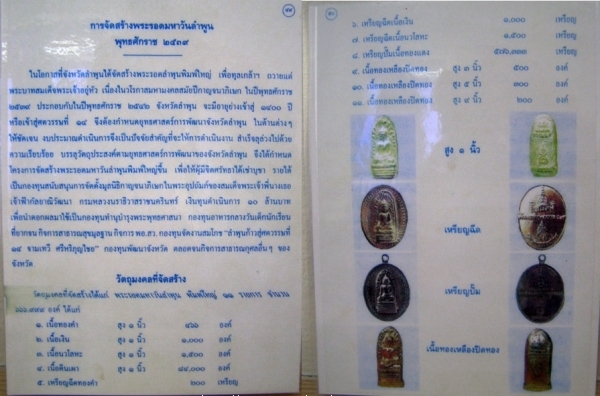 การจัดสร้างพระรอดมหาวันลำพูน
พุทธศักราช ๒๕๓๙
ในโอกาสที่จังหวัดลำพูนได้จัดสร้างพระรอดลำพูนพิมพ์ใหญ่ เพื่อทูลเกล้าฯ ถวายแด่
พระบาทสมเด็จพระเจ้าอยู่หัว เนื่องในวโรกาสมหามงคลสมัยปีกาญจนาภิเษก ในปีพุทธศักราช
๒๕๓๙ ประกอบกับในปีพุทธศักราช ๒๕๔๒ จังหวัดลำพูน จะมีอายุย่างเข้าสู่ ๑๔๐๐ ปี
หรือเข้าสู่ศตวรรษที่ ๑๔ จึงต้องกำหนดยุทธศาสตร์การพัฒนาจังหวัดลำพูน ในด้านต่างๆ
ให้ชัดเจน งบประมาณดำเนินการจึงเป็นปัจจัยสำคัญที่จะให้การดำเนินงาน สำเร็จลุล่วงไปด้วย
ความเรียบร้อย บรรลุวัตถุประสงค์ตามยุทธศาสตร์การพัฒนาของจังหวัดลำพูน จึงได้กำหนด
โครงการจัดสร้างพระรอดมหาวันลำพูนพิมพ์ใหญ่ขึ้น เพื่อให้ผู้มีจิตศรัทธาได้เช่าบูชา รายได้
เป็นกองทุนสนับสนุนการจัดตั้งมูลนิธิกาญจนาภิเษกในพระอุปถัมภ์ของสมเด็จพระเจ้าพี่นางเธอ
เจ้าฟ้ากัลยาณิวัฒนา กรมหลวงนราธิวาสราชนครินทร์ เงินทุนดำเนินการ ๑๐ ล้านบาท
เพื่อนำดอกผลมาใช้เป็นกองทุนทำนุบำรุงพระพุทธศาสนา กองทุนอาหารกลางวันเด็กนักเรียน
ที่ยากจน กิจการสาธารณสุขมูลฐาน กิจการ พอ.สว. กองทุนจัดงานสมโภช "ลำพูนก้าวสู่ศตวรรษที่
๑๔ จามเทวี ศรีหริภุญไชย" กองทุนพัฒนาจังหวัด ตลอดจนกิจการสาธารณกุศลอื่นๆ ของ
จังหวัด
วัตถุมงคลที่จัดสร้าง
วัตถุมงคลที่จัดสร้างได้แก่ พระรอดมหาวันลำพูน พิมพ์ใหญ่ ๑๑ รายการ จำนวน
องค์ ได้แก่
๑. เนื้อทองคำ สูง ๑ นิ้ว ๔๖๖ องค์
๒. เนื้อเงิน สูง ๑ นิ้ว ๑,๐๐๐ องค์
๓. เนื้อนวโลหะ สูง ๑ นิ้ว ๑,๕๐๐ องค์
๔. เนื้อดินเผา สูง ๑ นิ้ว ๘๔,๐๐๐ องค์
๕. เหรียญฉีดทองคำ ๒๐๐ เหรียญ
๖. เหรียญฉีดเนื้อเงิน ๑,๐๐๐ เหรียญ
๗. เหรียญฉีดเนื้อนวโลหะ ๑,๕๐๐ เหรียญ
๘. เหรียญปั๊มเนื้อทองแดง เหรียญ
๙. เนื้อทองเหลืองปิดทอง สูง ๓ นิ้ว ๕๐๐ องค์
๑๐. เนื้อทองเหลืองปิดทอง สูง ๕ นิ้ว ๓๐๐ องค์
๑๑. เนื้อทองเหลืองปิดทอง สูง ๙ นิ้ว ๒๐๐ องค์
สูง ๑ นิ้ว
เหรียญฉีด
เหรียญปั๊ม
เนื้อทองเหลืองปิดทอง